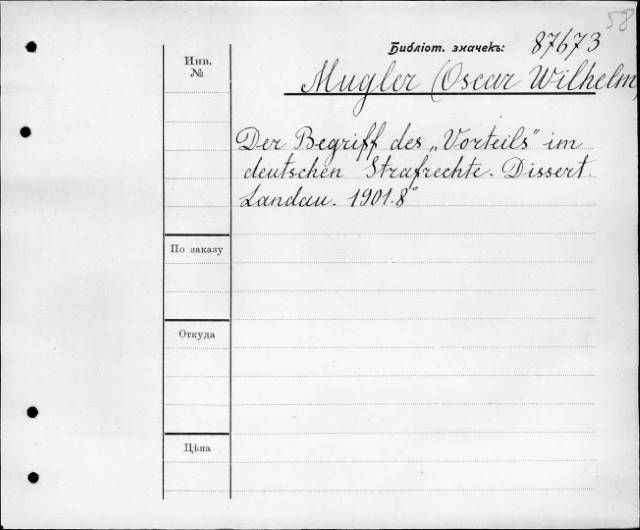 58
Библіот. значекъ: 87673
Инв.
№
Mugler (Oscar Wilhelm)
Der Begriff des „Vorteils" im
deutschen Strafrechte. Dissert.
Landau. 1901. 8°
По заказу
Откуда
Цѣна